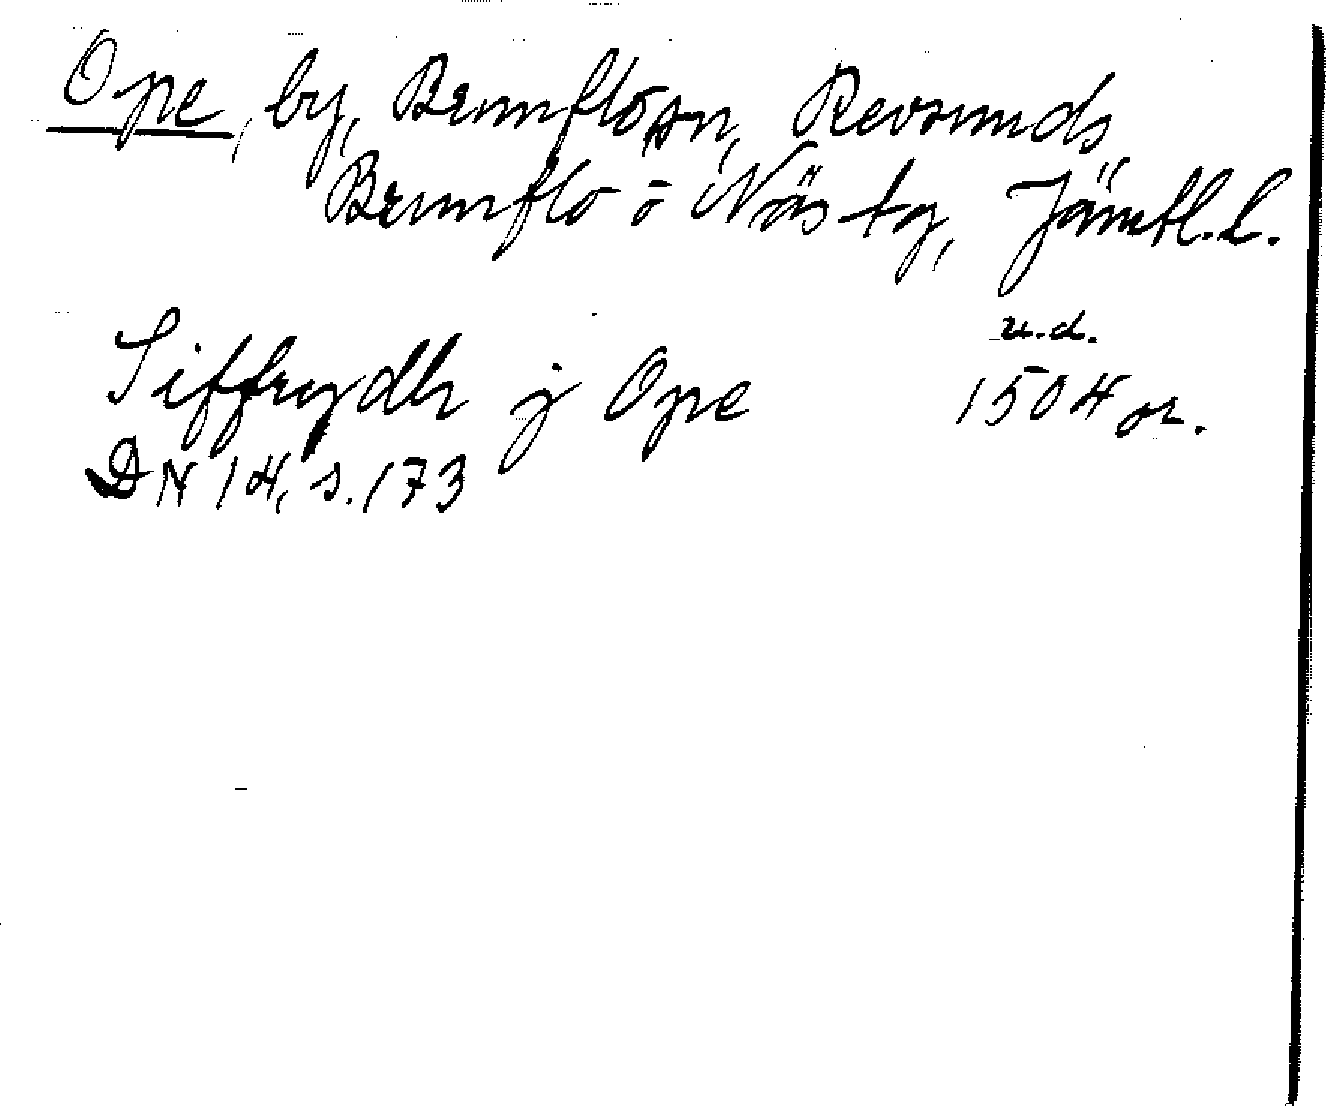 Ope, by, Brunflo sn, Revsunds,
Brunflo o Näs tg, Jämtl. l.
u.d.
Siffrydh j Ope 1504 or.
DN 14, s. 173